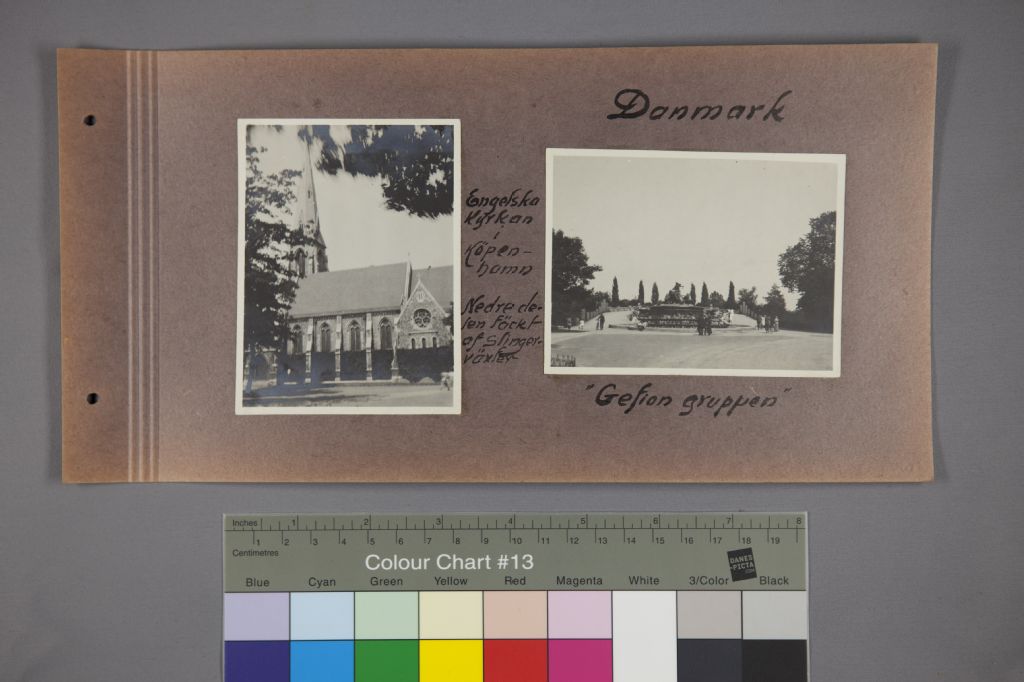 Danmark
Engelska
Kyrkan
i
Köpen-
hamn
Nedre de-
len täckt
af Slinger-
växter
"Gefion gruppen"
Inches 1 2 3 4 5 6 7 8
1 2 3 4 5 6 7 8 9 10 11 12 13 14 15 16 17 18 19
Centimetres
Colour Chart #13
DANES
-PICTA
.COM
Blue Cyan Green Yellow Red Magenta White 3/Color Black